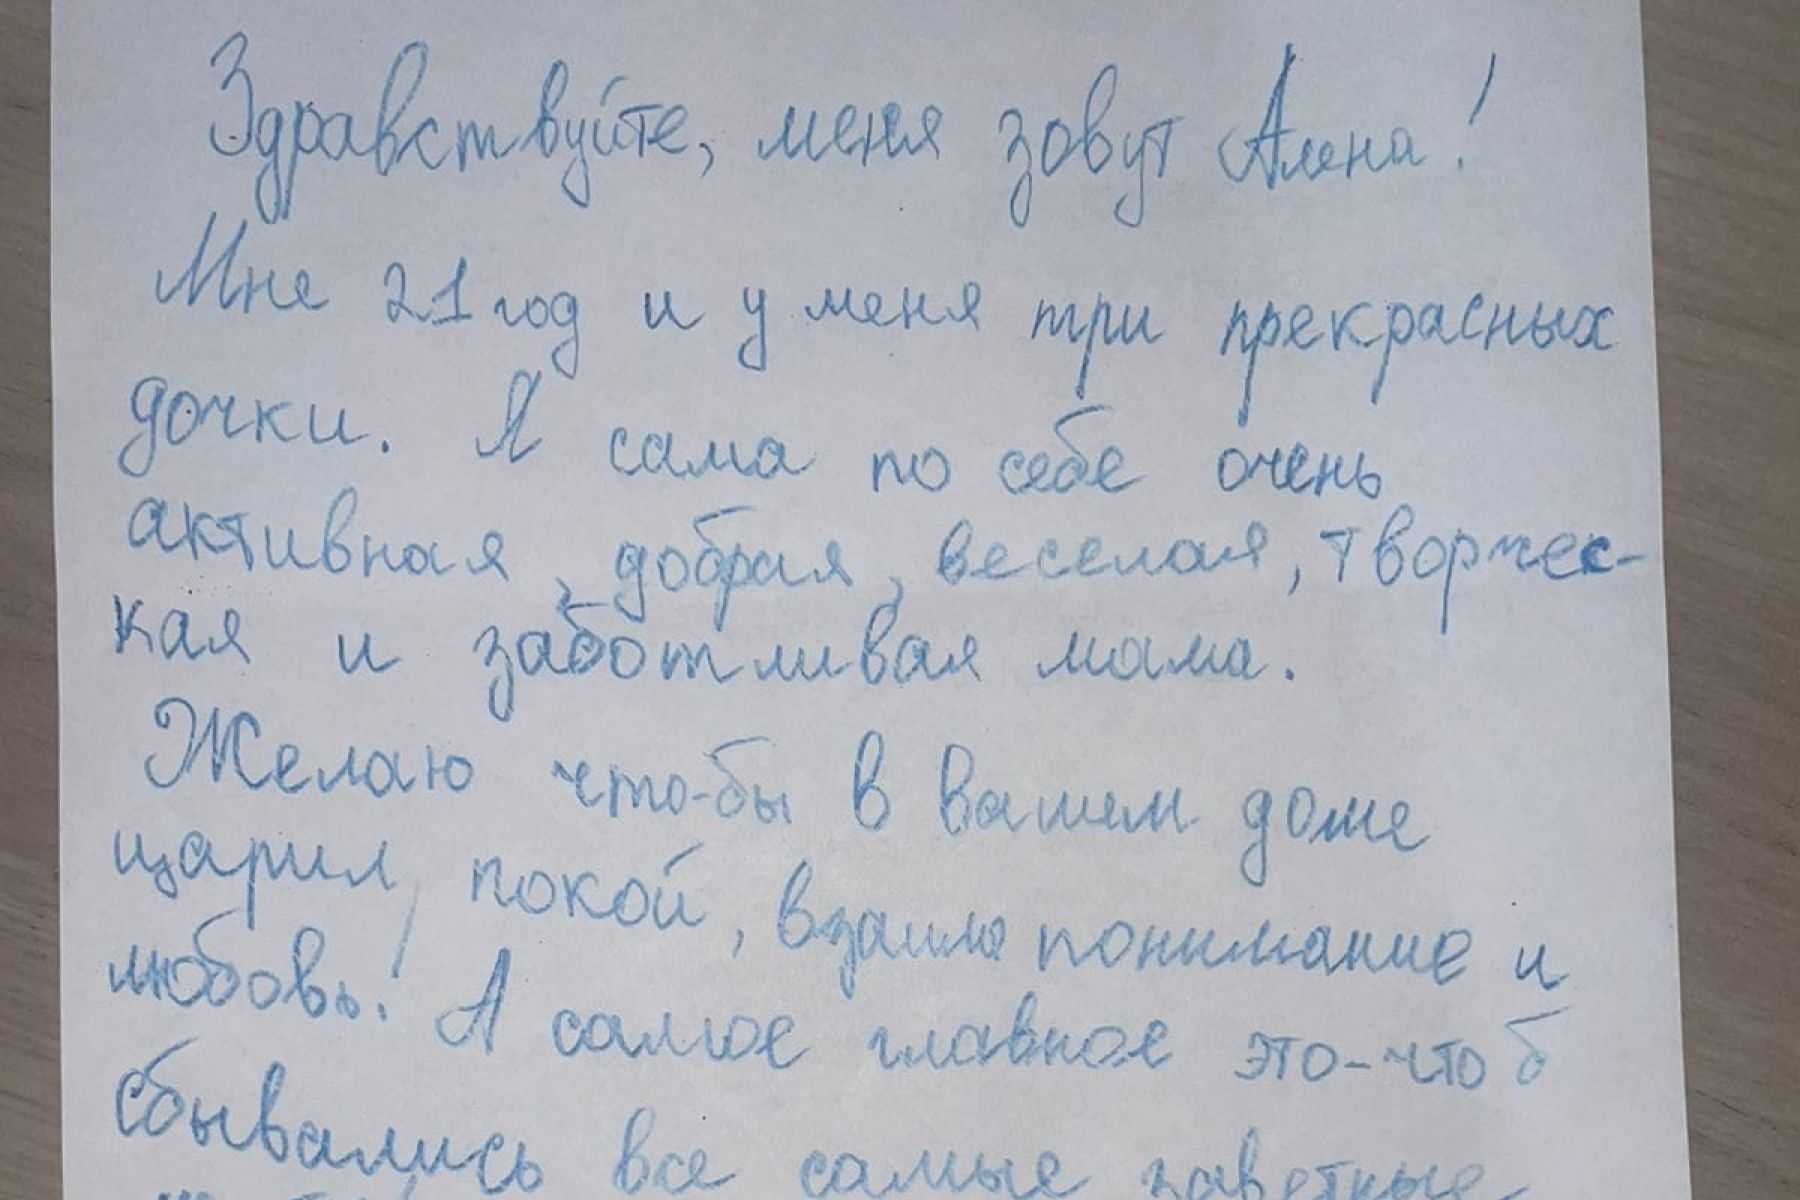 Здравствуйте, меня зовут Алена!
Мне 21 год и у меня три прекрасных
дочки. Я сама по себе очень
активная, добрая, веселая, творчес-
кая и заботливая мама.
Желаю что-бы в вашем доме
царил покой, взаимопонимание и
любовь! А самое главное это-что б
сбывались все самые заветные